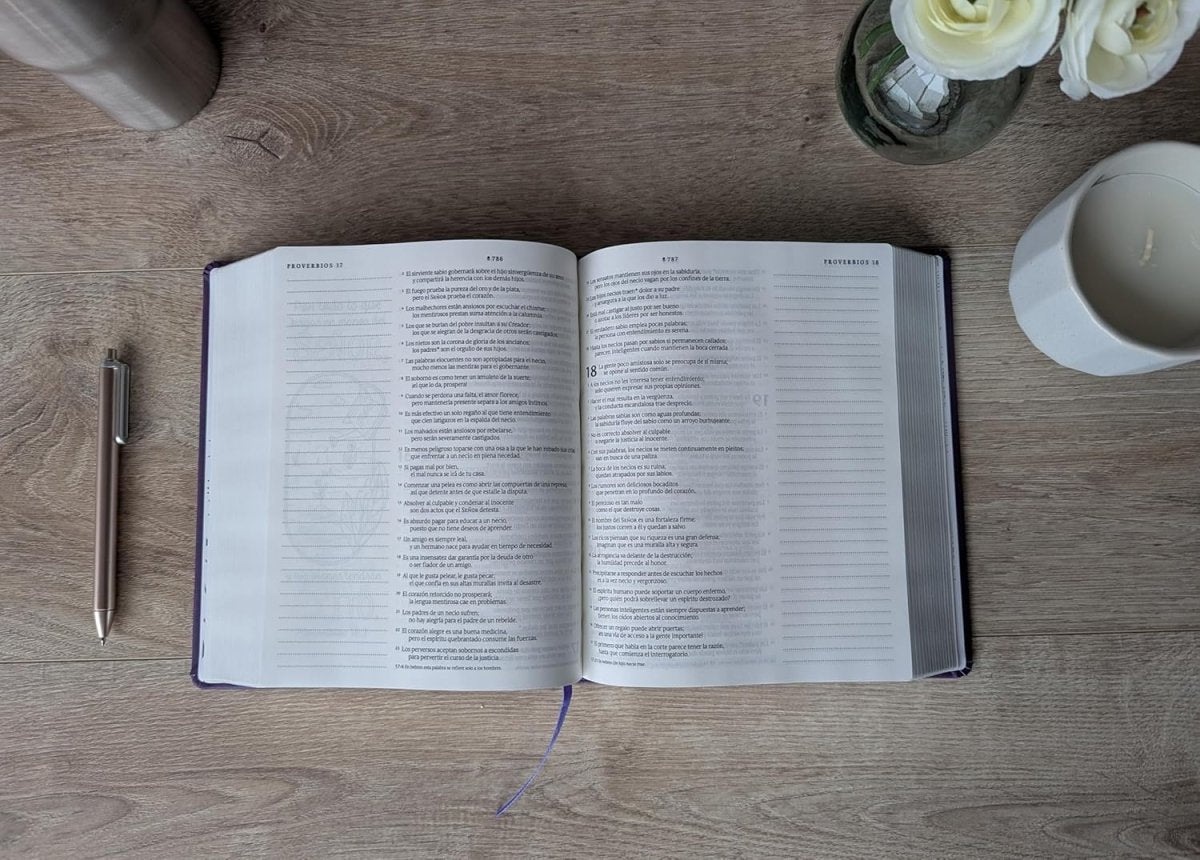 PROVERBIOS 17
786
El sirviente sabio gobernará sobre el hijo sinvergüenza de su amo
y compartirá la herencia con los demás hijos.
El fuego prueba la pureza del oro y de la plata,
pero el SEÑOR prueba el corazón.
Los malhechores están ansiosos por escuchar el chisme;
los mentirosos prestan suma atención a la calumnia.
Los que se burlan del pobre insultan a su Creador;
los que se alegran de la desgracia de otros serán castigados.
Los nietos son la corona de gloria de los ancianos;
los padres* son el orgullo de sus hijos.
Las palabras elocuentes no son apropiadas para el necio,
mucho menos las mentiras para el gobernante.
El soborno es como tener un amuleto de la suerte;
¡el que lo da, prospera!
Cuando se perdona una falta, el amor florece,
pero mantenerla presente separa a los amigos íntimos.
Es más efectivo un solo regaño al que tiene entendimiento
que cien latigazos en la espalda del necio.
Los malvados están ansiosos por rebelarse,
pero serán severamente castigados.
Es menos peligroso toparse con una osa a la que le han robado sus crías
que enfrentar a un necio en plena necedad.
Si pagas mal por bien,
el mal nunca se irá de tu casa.
Comenzar una pelea es como abrir las compuertas de una represa,
así que detente antes de que estalle la disputa.
Absolver al culpable y condenar al inocente
son dos actos que el SEÑOR detesta.
Es absurdo pagar para educar a un necio,
puesto que no tiene deseos de aprender.
Un amigo es siempre leal,
y un hermano nace para ayudar en tiempo de necesidad.
Es una insensatez dar garantía por la deuda de otro
o ser fiador de un amigo.
Al que le gusta pelear, le gusta pecar;
el que confía en sus altas murallas invita al desastre.
El corazón retorcido no prosperará;
la lengua mentirosa cae en problemas.
Los padres de un necio sufren;
no hay alegría para el padre de un rebelde.
El corazón alegre es una buena medicina,
pero el espíritu quebrantado consume las fuerzas.
Los perversos aceptan sobornos a escondidas
para pervertir el curso de la justicia.
17:6 En hebreo esta palabra se refiere solo a los hombres.
787
PROVERBIOS 18
Los sensatos mantienen sus ojos en la sabiduría,
pero los ojos del necio vagan por los confines de la tierra.
Los hijos necios traen* dolor a su padre
y amargura a la que los dio a luz.
Está mal castigar al justo por ser bueno
o azotar a los líderes por ser honestos.
El verdadero sabio emplea pocas palabras;
la persona con entendimiento es serena.
Hasta los necios pasan por sabios si permanecen callados;
parecen inteligentes cuando mantienen la boca cerrada.
18 La gente poco amistosa solo se preocupa de sí misma;
se opone al sentido común.
A los necios no les interesa tener entendimiento;
solo quieren expresar sus propias opiniones.
Hacer el mal resulta en la vergüenza,
y la conducta escandalosa trae desprecio.
Las palabras sabias son como aguas profundas;
la sabiduría fluye del sabio como un arroyo burbujeante.
No es correcto absolver al culpable
o negarle la justicia al inocente.
Con sus palabras, los necios se meten continuamente en pleitos;
van en busca de una paliza.
La boca de los necios es su ruina;
quedan atrapados por sus labios.
Los rumores son deliciosos bocaditos
que penetran en lo profundo del corazón.
El perezoso es tan malo
como el que destruye cosas.
El nombre del SEÑOR es una fortaleza firme;
los justos corren a él y quedan a salvo.
Los ricos piensan que su riqueza es una gran defensa;
imaginan que es una muralla alta y segura.
La arrogancia va delante de la destrucción;
la humildad precede al honor.
Precipitarse a responder antes de escuchar los hechos
es a la vez necio y vergonzoso.
El espíritu humano puede soportar un cuerpo enfermo,
¿pero quién podrá sobrellevar un espíritu destrozado?
Las personas inteligentes están siempre dispuestas a aprender;
tienen los oídos abiertos al conocimiento.
Ofrecer un regalo puede abrir puertas;
¡es una vía de acceso a la gente importante!
El primero que habla en la corte parece tener la razón,
hasta que comienza el interrogatorio.